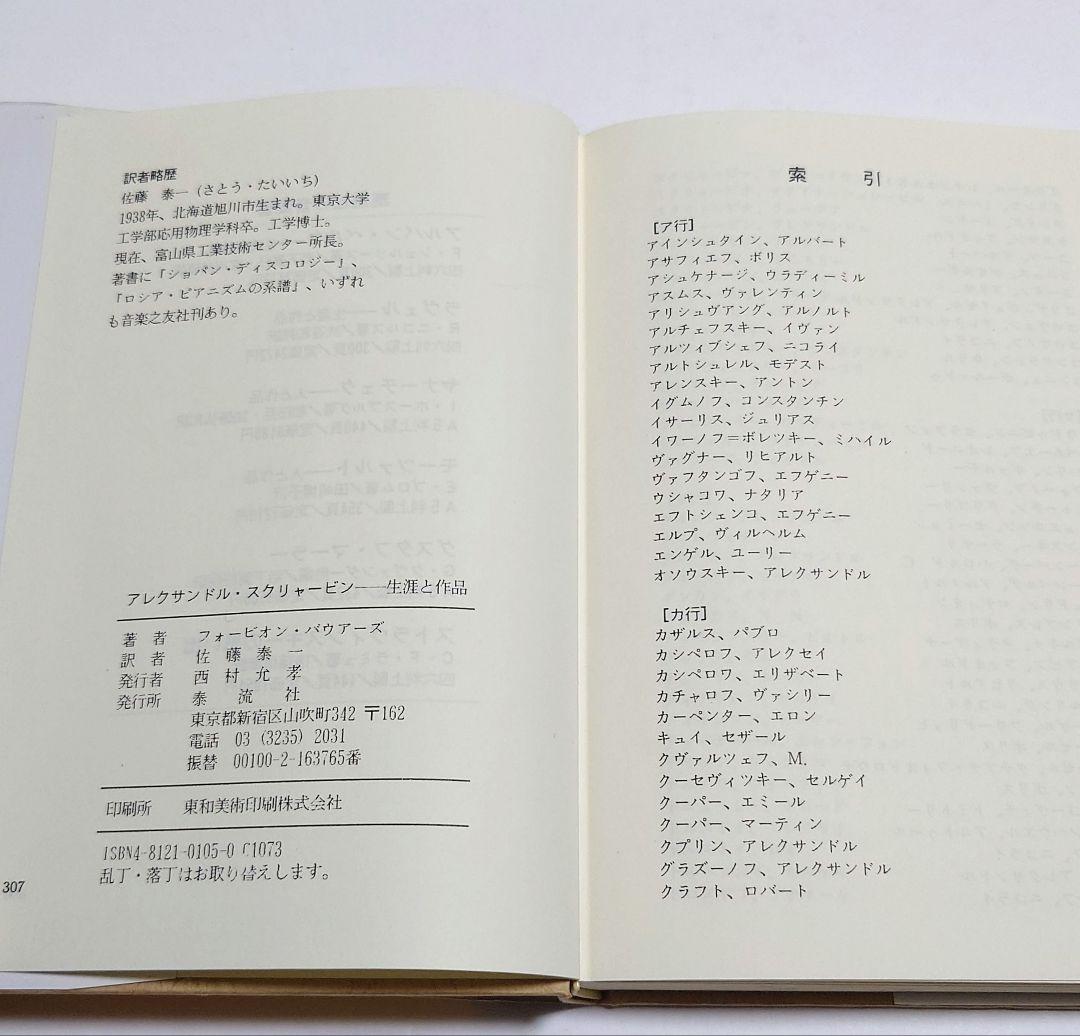 訳者略歴
佐藤 泰一(さとう・たいいち)
1938年、北海道旭川市生まれ。東京大学
工学部応用物理学科卒。工学博士。
現在、富山県工業技術センター所長。
著書に「ショパン・ディスコロジー」、
「ロシア・ピアニズムの系譜」、いずれ
も音楽之友社刊あり。
アレクサンドル・スクリャービン——生涯と作品
著者 フォービオン・バウアーズ
訳者 佐藤泰一
発行者 西村允孝
発行所 泰流社
東京都新宿区山吹町342 〒162
電話 03 (3235) 2031
振替 00100-2-163765番
印刷所 東和美術印刷株式会社
ISBN4-8121-0105-0 C1073
乱丁・落丁はお取り替えします。
307
索引
[ア行]
アインシュタイン、アルバート
アサフィエフ、ボリス
アシュケナージ、ウラディーミル
アスムス、ヴァレンティン
アリシュヴアング、アルノルト
アルチェフスキー、イヴァン
アルツィブシェフ、ニコライ
アルトシュレル、モデスト
アレンスキー、アントン
イグムノフ、コンスタンチン
イサーリス、ジュリアス
イワーノフ=ボレツキー、ミハイル
ヴァグナー、リヒアルト
ヴァフタンゴフ、エフゲニー
ウシャコワ、ナタリア
エフトシェンコ、エフゲニー
エルプ、ヴィルヘルム
エンゲル、ユーリー
オソウスキー、アレクサンドル
[カ行]
カザルス、パブロ
カシペロフ、アレクセイ
カシペロワ、エリザベート
カチャロフ、ヴァシリー
カーペンター、エロン
キュイ、セザール
クヴァルツェフ、M.
クーセヴィツキー、セルゲイ
クーパー、エミール
クーパー、マーティン
クプリン、アレクサンドル
グラズーノフ、アレクサンドル
クラフト、ロバート